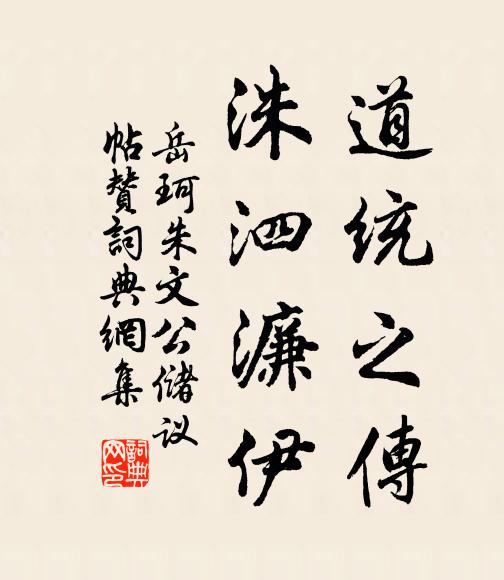 道統之傳
洙泗濂伊
岳珂朱文公儲议
帖贊詞典網集
詞典
网印